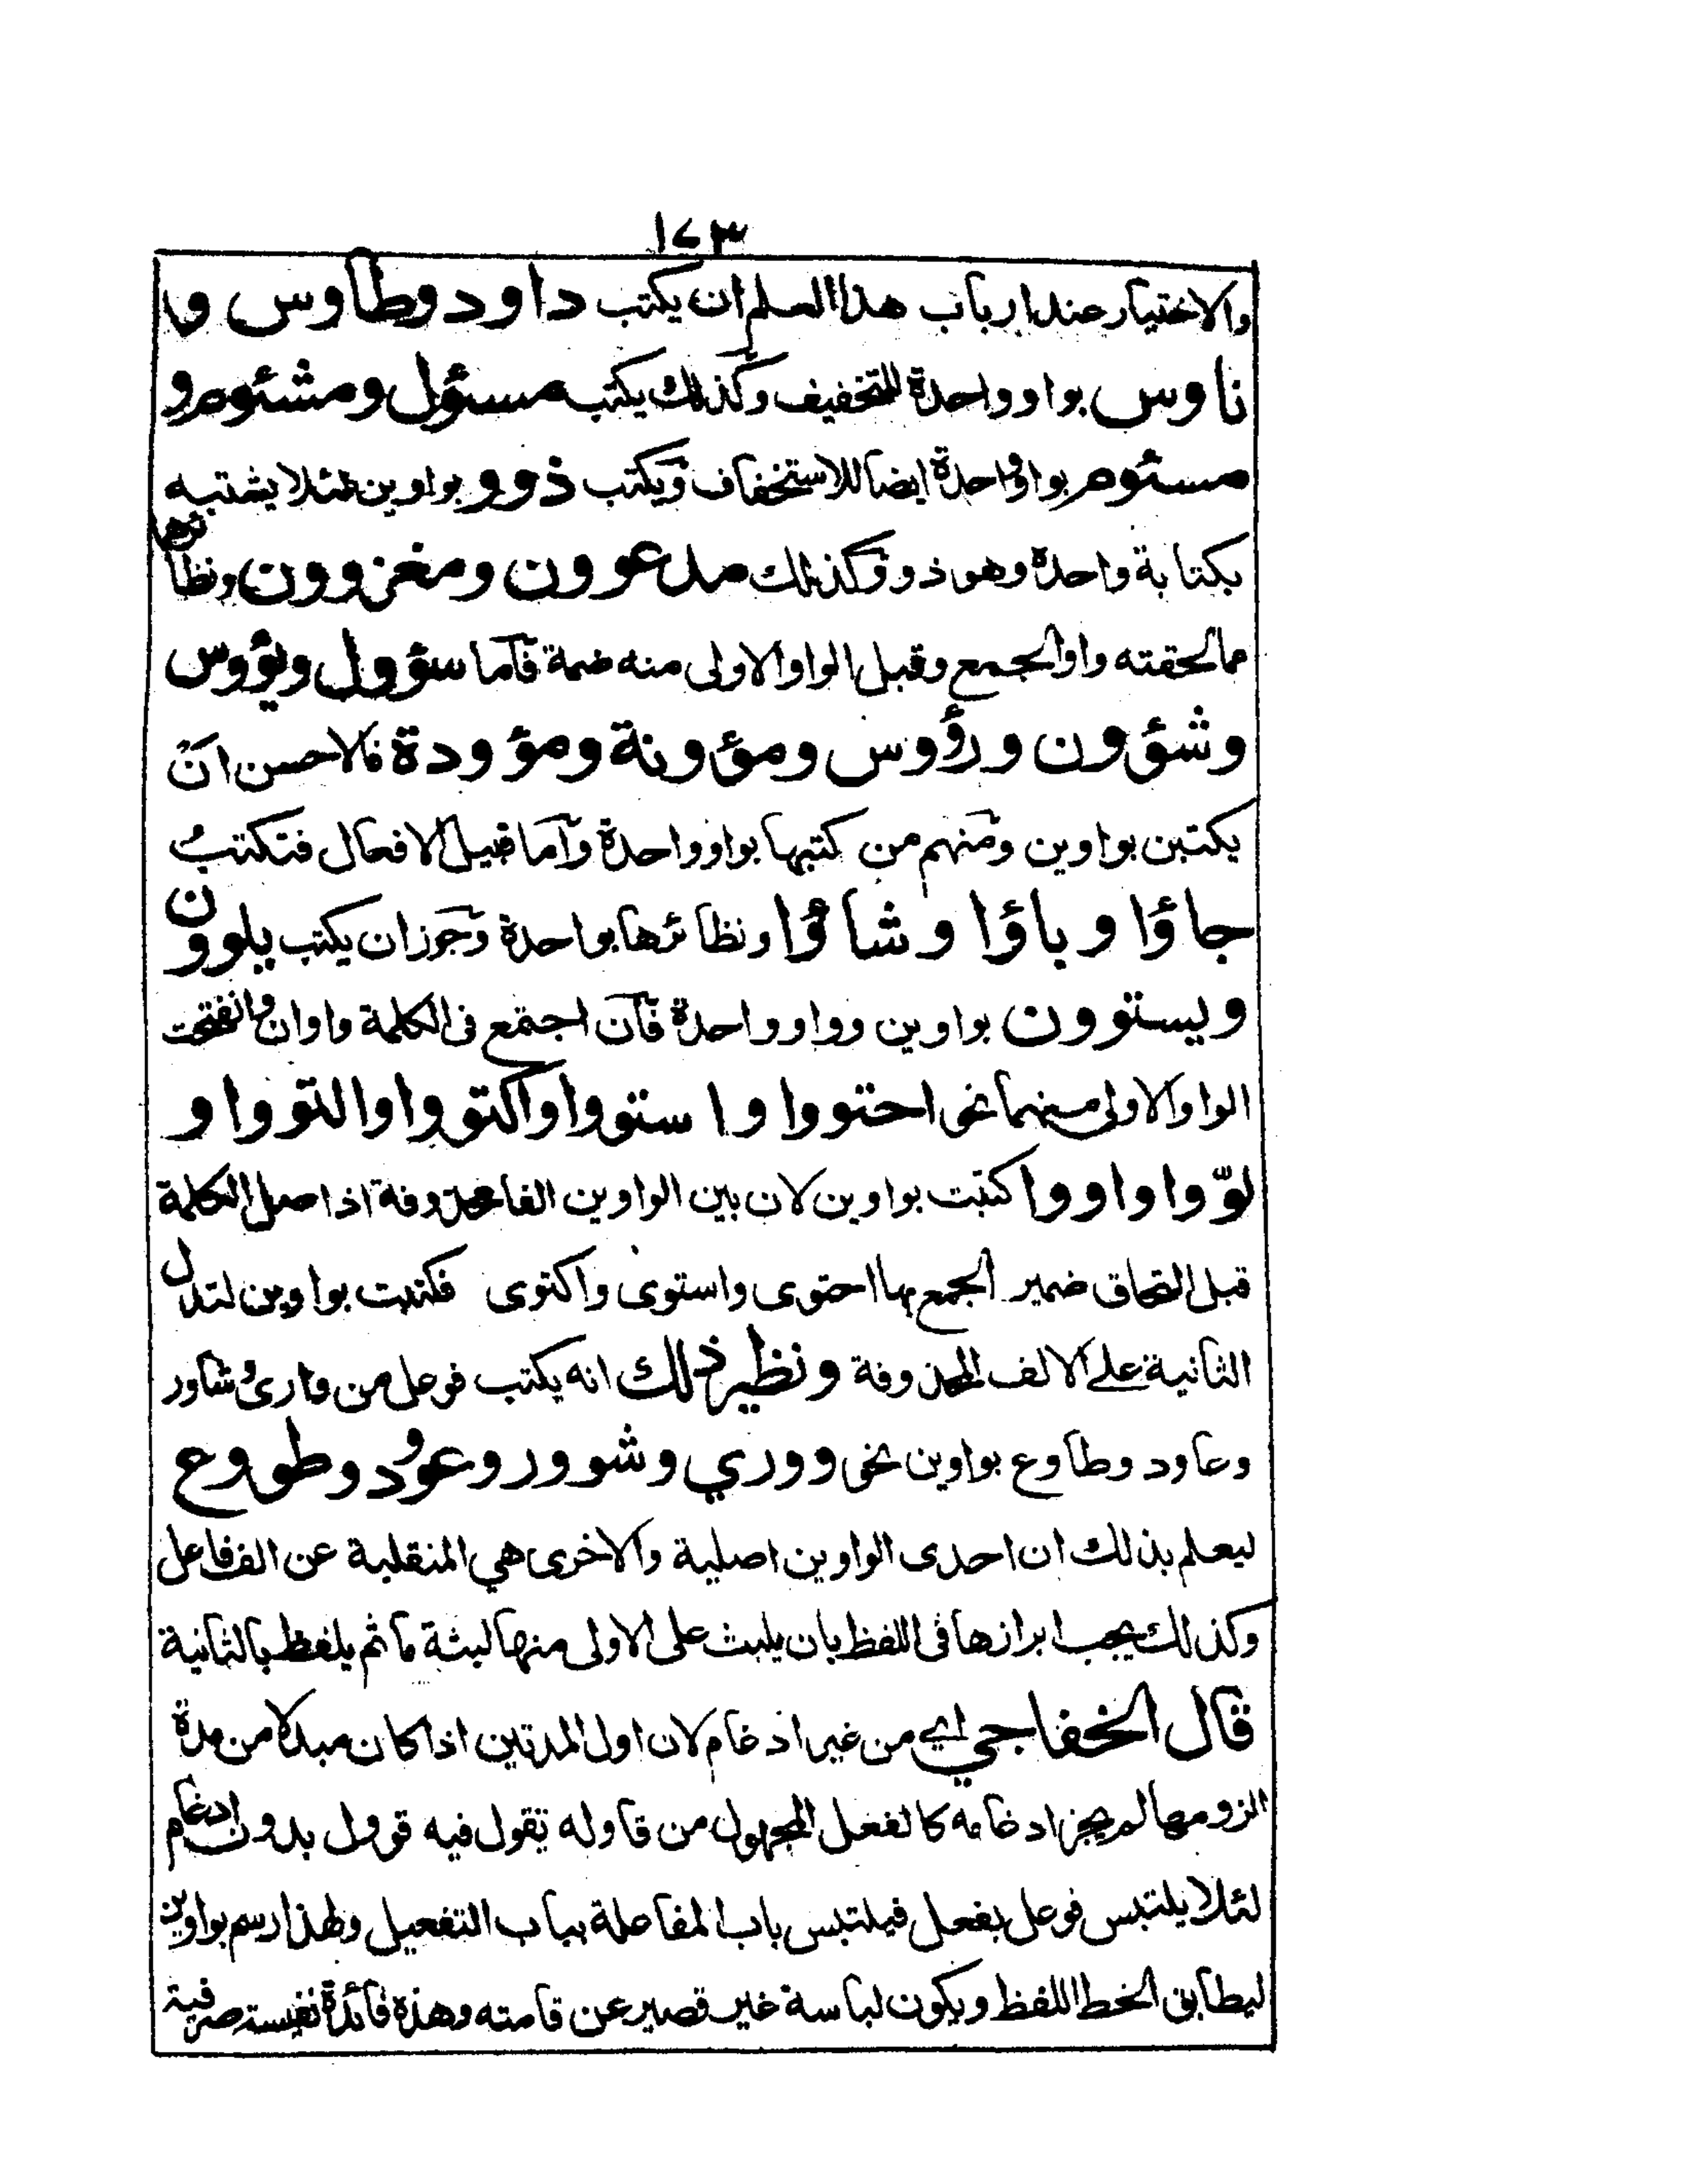 ١٧٣
والاختيار عند ارباب هذا العلم ان يكتب داود وطاوس و
ناوس بواو واحدة للتخفيف وكذلك يكتب مسئول ومشئوم و
مسئوم بواو واحدة ايضا للاستخفاف ويكتب ذوو بواوين لئلا يشتبه
بكتابة واحدة وهو ذو وكذلك مدعوون ومغزوون ونظائرها
مما لحقته واو الجمع وقبل الواو الاولى منه ضمة فاما سؤول ويؤوس
وشؤون ورؤوس ومؤونة ومؤودة فالاحسن ان
يكتبن بواوين ومنهم من كتبها بواو واحدة واما قبيل الافعال فتكتب
جاؤا وباؤا وشاؤا ونظائرها بواحدة وجوز ان يكتب يلوون
ويستوون بواوين وواو واحدة فان اجتمع فى الكلمة واوان وانفتحت
الواو الاولى منهما نحو احتووا واستووا واكتووا والتووا و
لوّوا واووا كتبت بواوين لان بين الواوين الفا محذوفة اذ اصل الكلمة
قبل التحاق ضمير الجمع بها احتوى واستوى واكتوى فكتبت بواوين لتدل
الثانية على الالف المحذوفة ونظير ذلك انه يكتب فوعل من وارى وشاور
وعاود وطاوع بواوين نحو ووري وشوور وعوود وطووع
ليعلم بذلك ان احدى الواوين اصلية والاخرى هي المنقلبة عن الف فاعل
وكذلك يجب ابرازها فى اللفظ بان يلبث على الاولى منها لبثة ما ثم يلفظ بالثانية
قال الخفاجي اي من غير ادغام لان اول المدتين اذا كان مبدلا من مدة
الزومها لم يجز ادغامه كالفعل المجهول من قاوله تقول فيه قوول بدون ادغام
لئلا يلتبس فوعل بفعل فيلتبس باب المفاعلة بباب التفعيل ولهذا رسم بواوين
ليطابق الخط اللفظ ويكون لباسة غير قصير عن قامته وهذه فائدة نفيسة صرفية